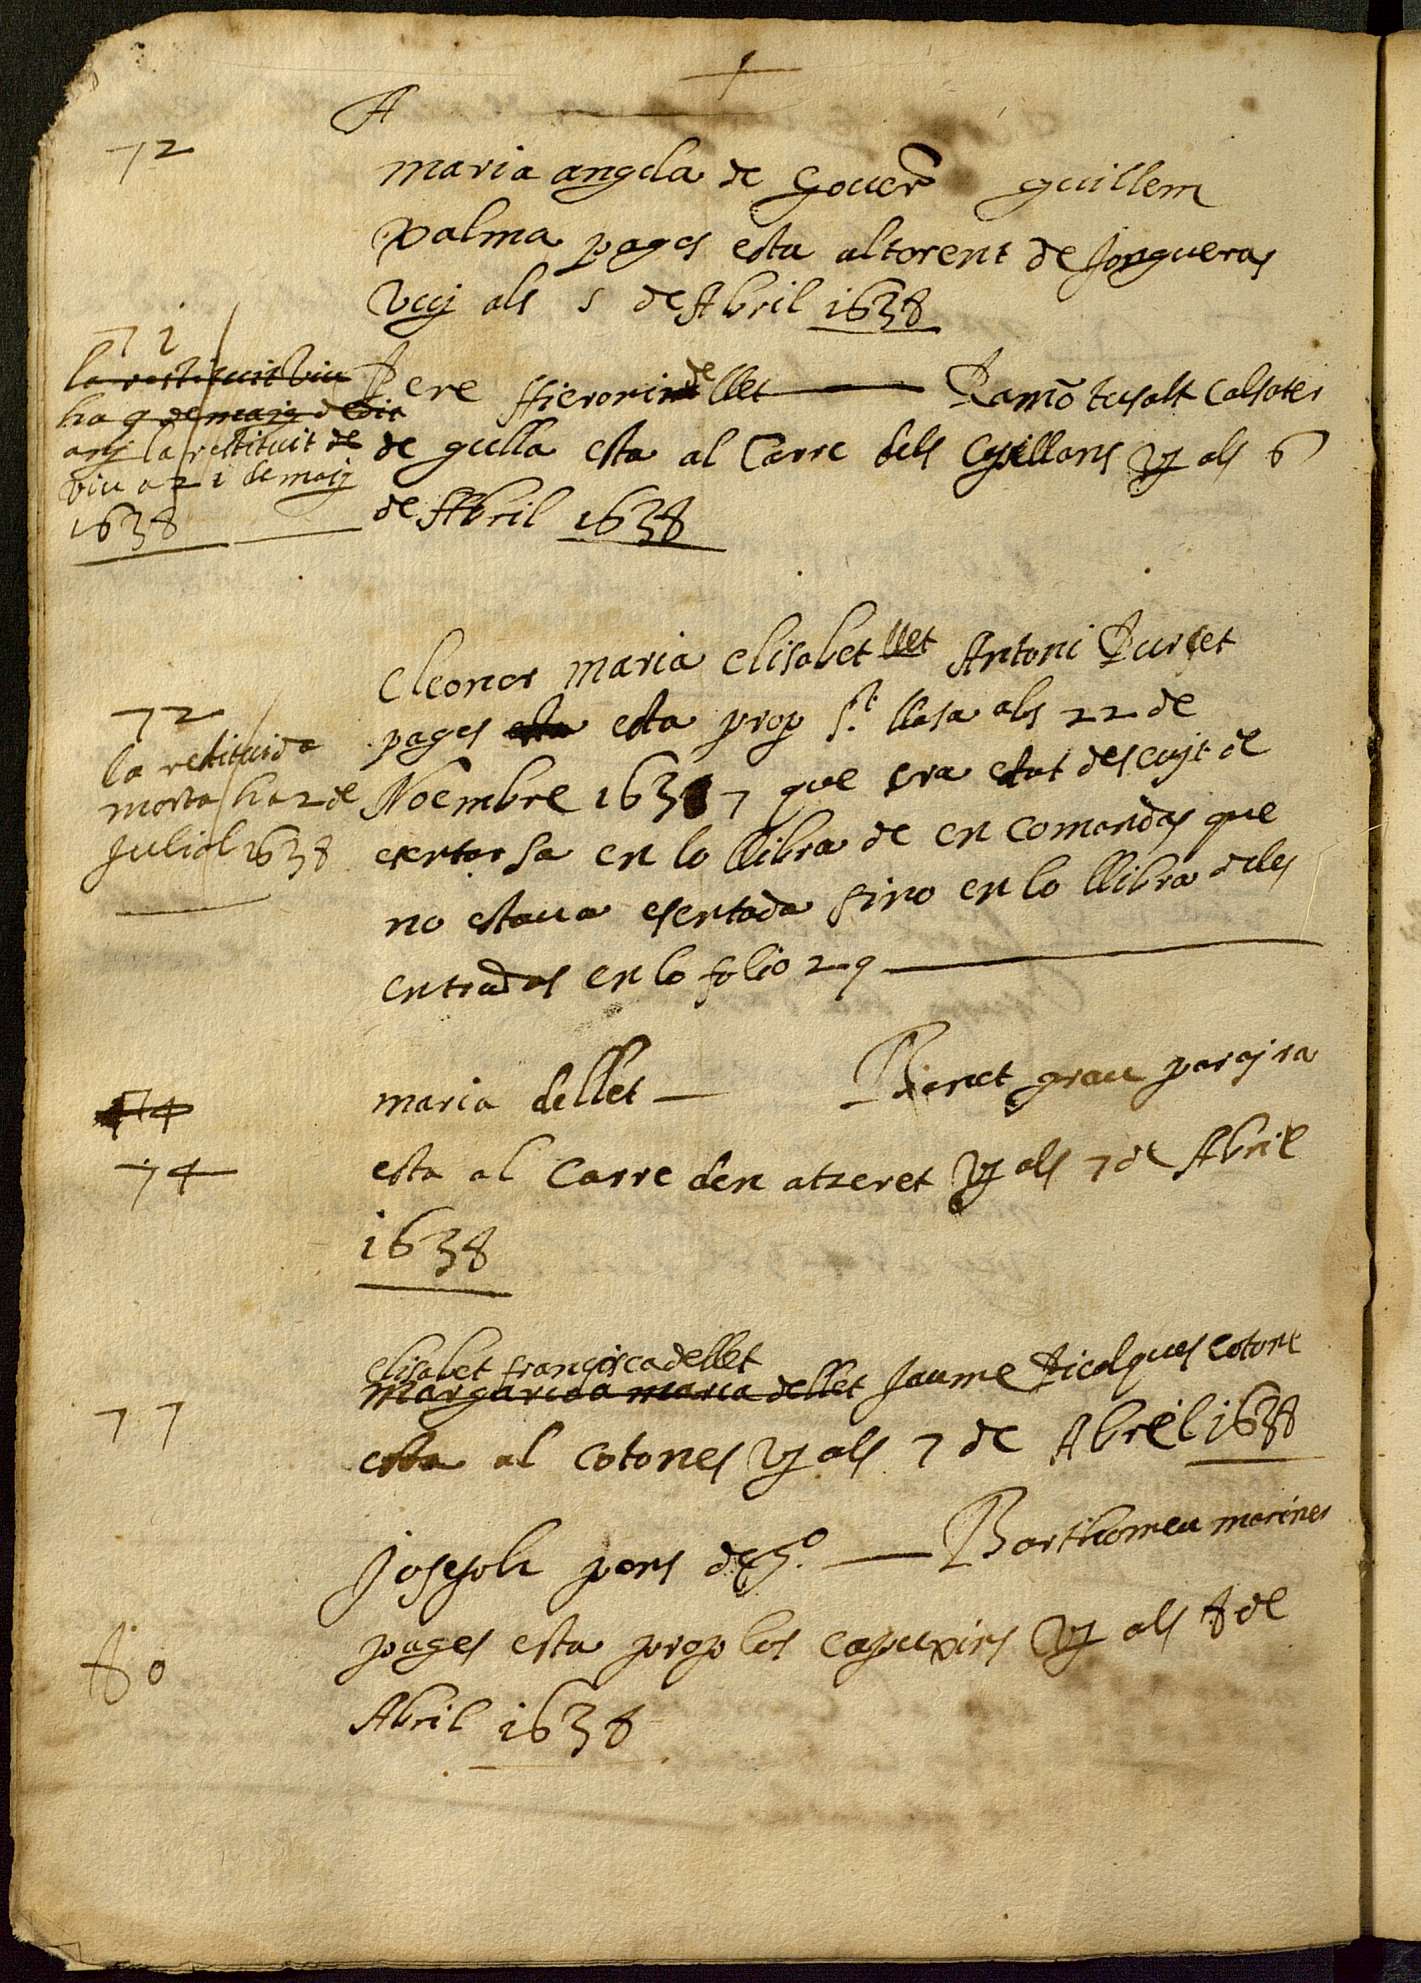 A
72
maria angela de Gouern guillem
palma pages esta al torent de Jongueras
vuj als 5 de Abril 1638
71
la restituit viu
ha 9 de maig de dit
anj la restituit de
viu a 21 de maij
1638
Pere Hieroni de llet Ramō tusalt Calsater
de gulla esta al Carre dels Capellans vj als 6
de Abril 1638
Eleonor maria elisabet llet Antoni Purset
pages esta esta prop St. llasa als 22 de
Noembre 1637 que sra estat descuyt de
esentarsa en lo llibra de en comandas que
no estaua esentada sino en lo llibra deles
entrades en lo folio 29
72
la restituida
morta ha 2 de
Juliol 1638
74
74
maria de llet Bienet grau parayra
esta al Carre den atzeret vj als 7 de Abril
1638
77
elisabet francisca de llet
margarida maria de llet Jaume Picalques cotone
esta al cotones vj als 7 de Abril 1638
80
Joseph pons de Go. Barthomeu marines
pages esta prop los capuxins vj als 8 de
Abril 1638